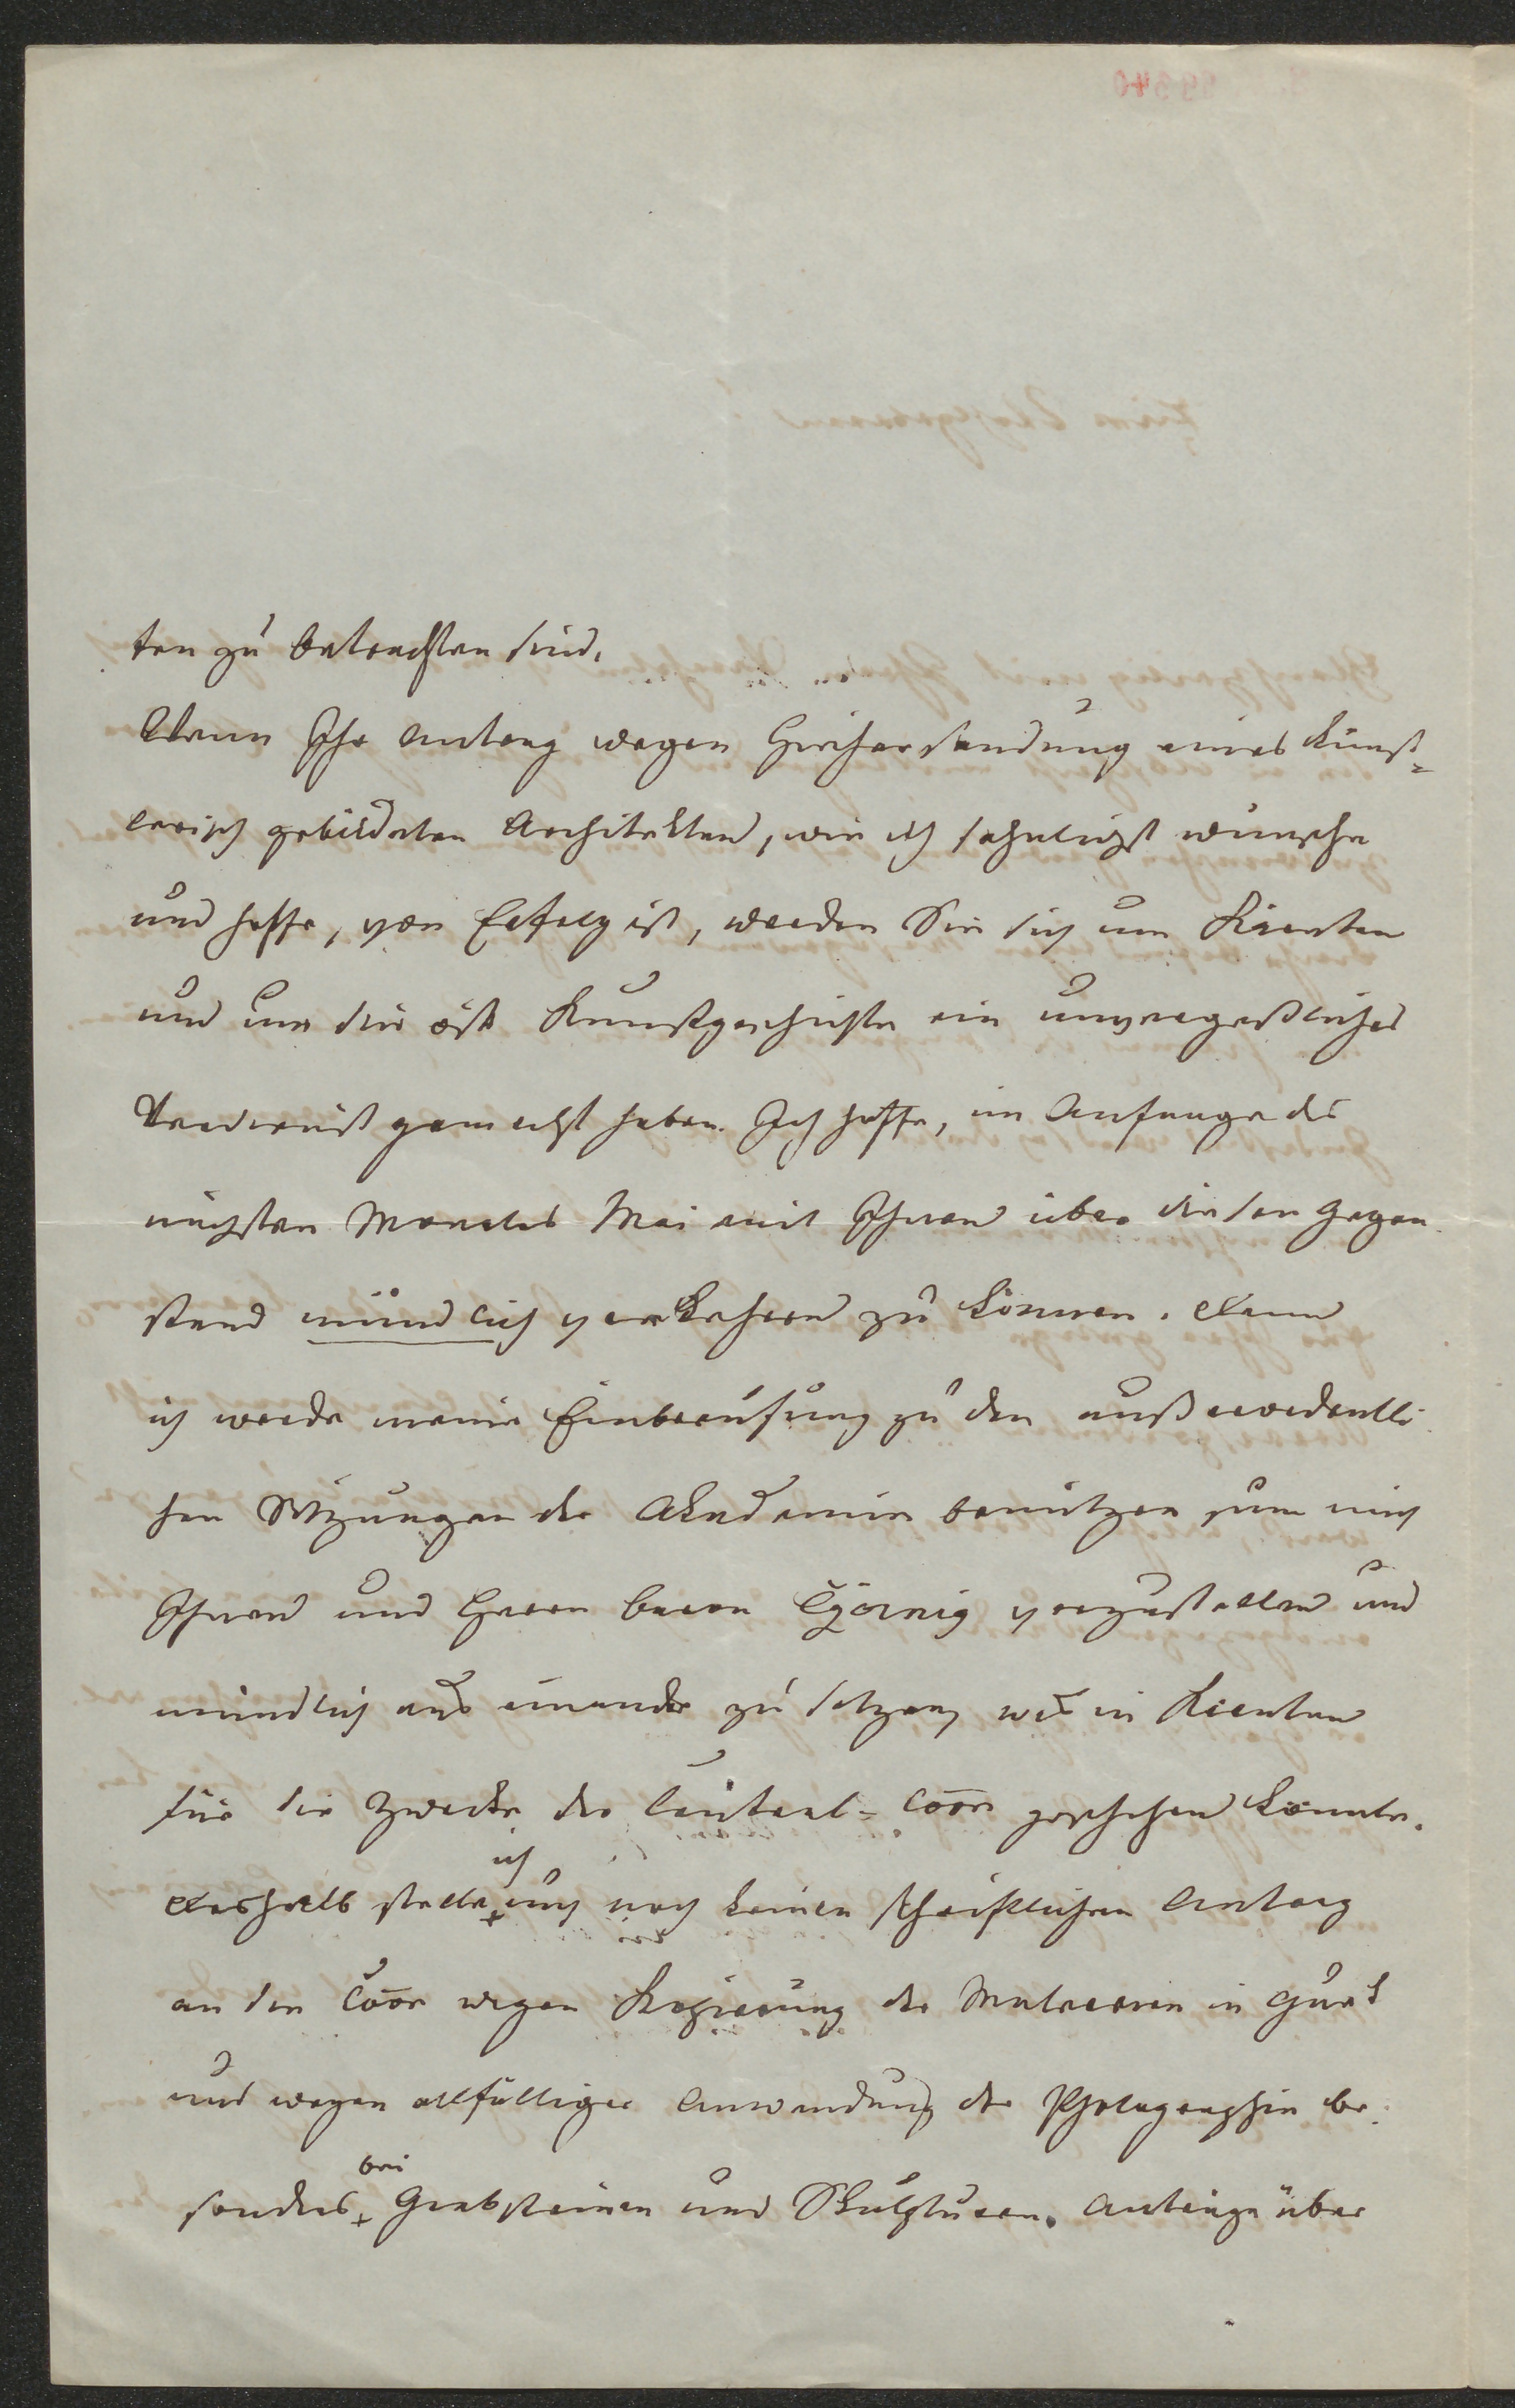 ten zu betrachten sind.
Wenn Ihr Antrag wegen Hieher sendung eines künst=
lerisch gebildeten Architekten, wie ich sehnlichst wünsche
und hoffe, von Erfolg ist, werden Sie sich um Kärnten
und um die öst. Kunstgeschichte ein unvergeßliches
Verdienst gemacht haben. Ich hoffe, im Anfange des
nächsten Monates Mai mit Ihnen über diesen Gegen
stand mündlich verkehren zu können. Denn
ich werde meine Einberufung zu den außerordentli
chen Sitzungen der Akademie benützen, um mich
Ihnen und Herrn Baron Czörnig vorzustellen und
mündlich aus einander zu setzen, was in Kärnten
für die Zwecke der Central-Coon geschehen könnte.
Deshalb stelle ich auch noch keinen schriftlichen Antrag
an die Coon wegen Kopierung der Malereien in Gurk
und wegen allfälliger Anwendung der Photographie be
sonders bei Grabsteinen und Skulpturen. Anträge über